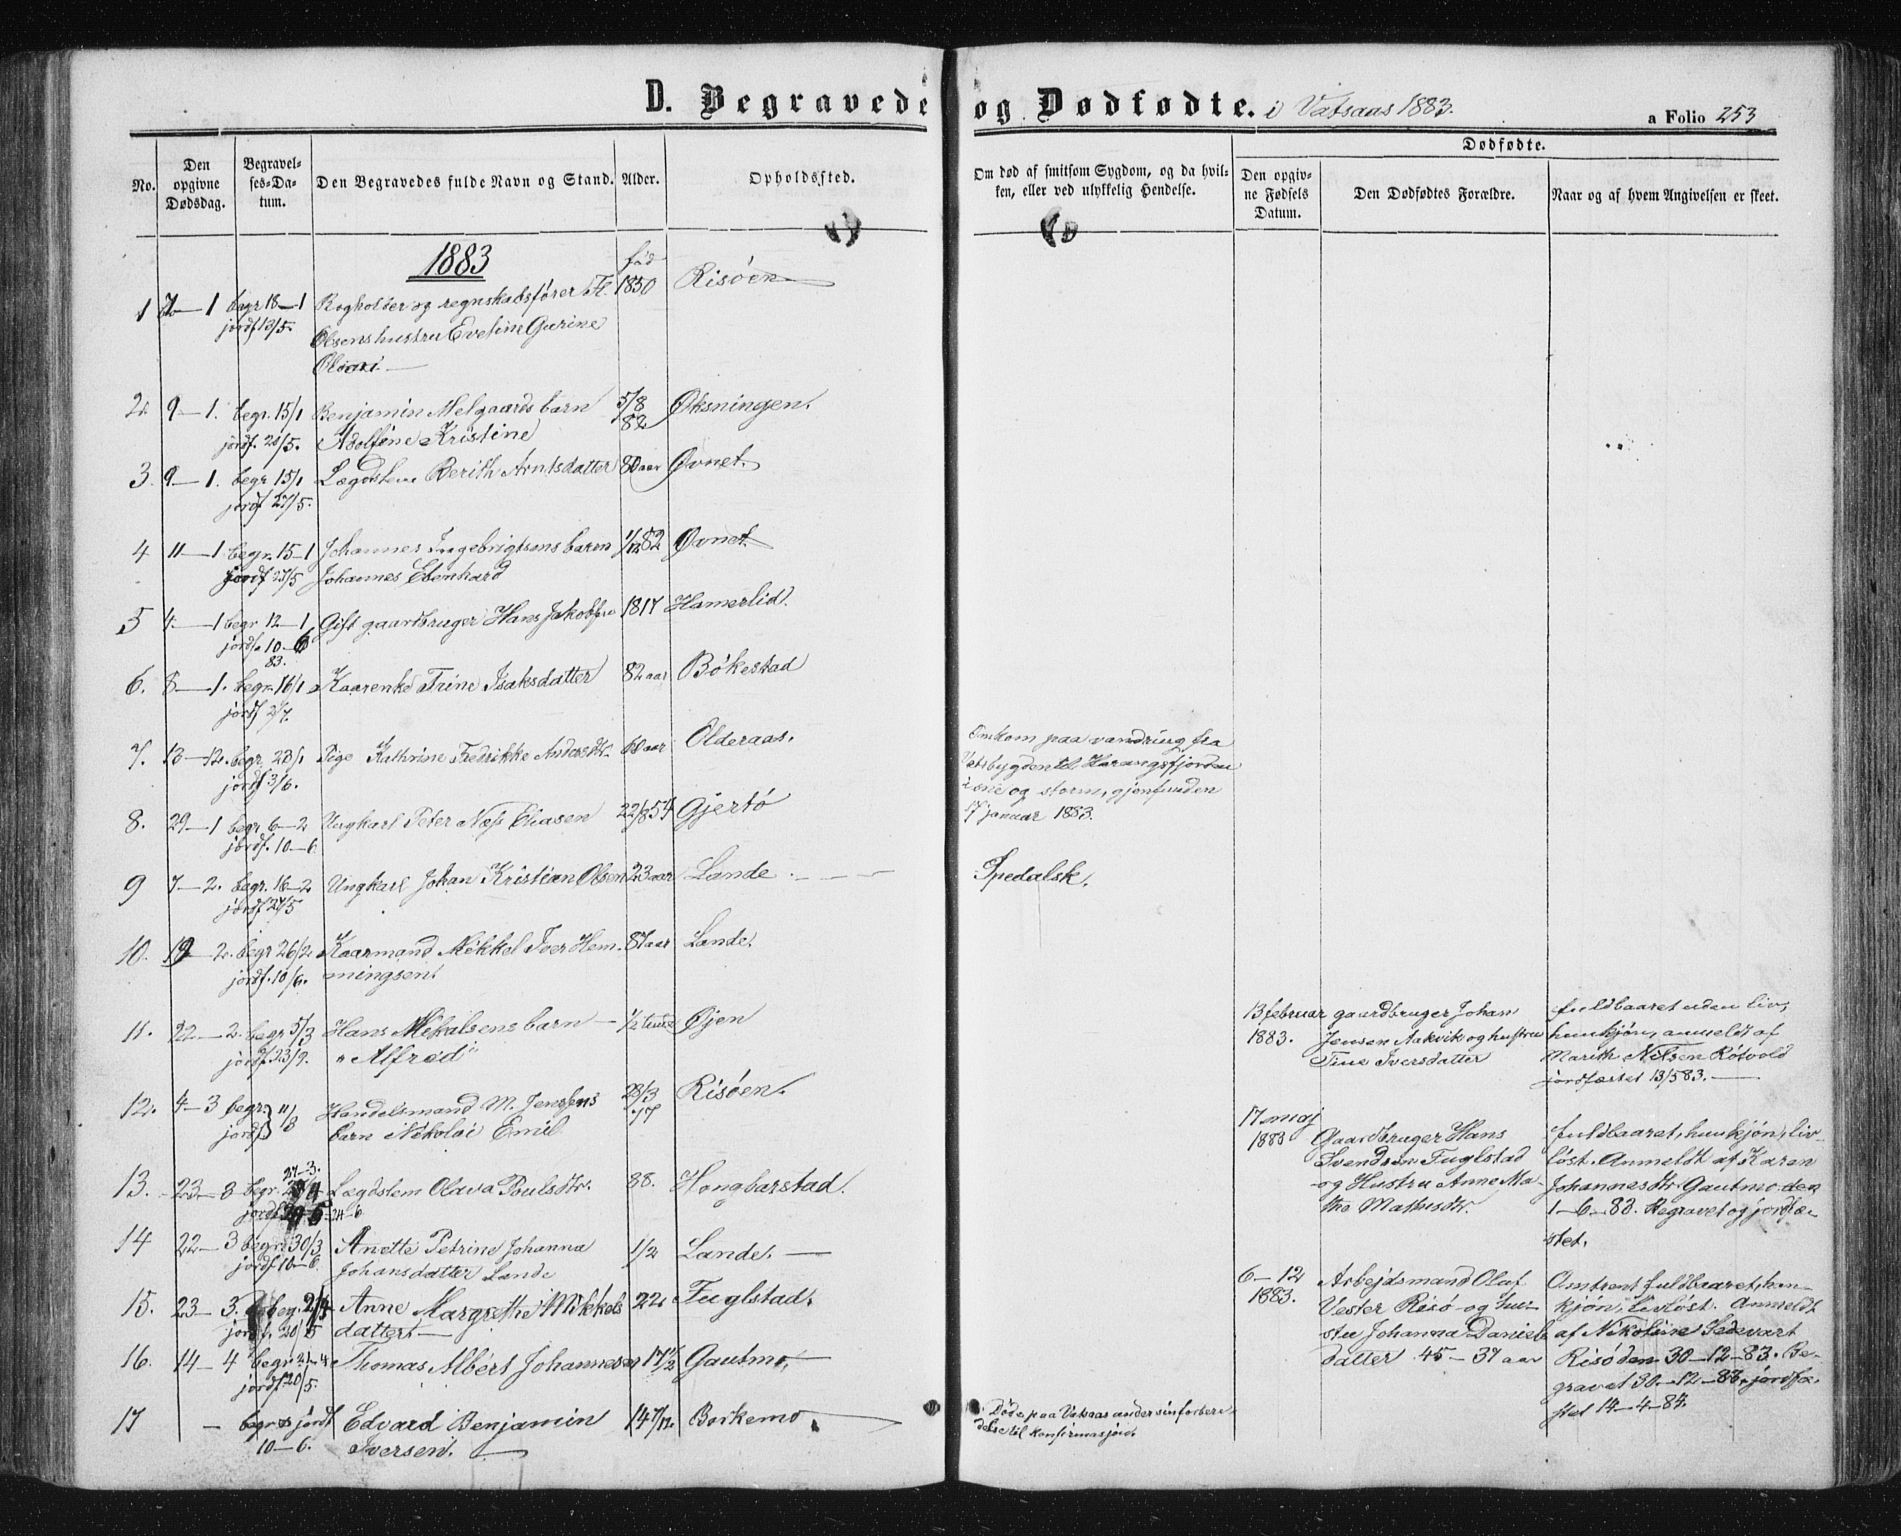 D. Begravede og Dødfødte. i Vatsaas 1883. a Folio 253
No.
Den opgivne Dødsdag.
Begravelses-Datum.
Den Begravedes fulde Navn og Stand.
Alder.
Opholdssted.
Om død af smitsom Sygdom, og da hvilken, eller ved ulykkelig Hendelse.
Dødfødte.
Den opgivne Fødsels Datum.
Den Dødfødtes Forældre.
Naar og af hvem Angivelsen er skeet.
1883
fød
1 7–1 begr 18–1 Bogholder og regnskabsfører Fr. 1850 Risøen
jordf 13/5. Olsens hustru Eveline Gurine
2. 9–1. begr. 15/1 Benjamin Melgaards barn 5/8 82 Øksningen.
jordf. 20/5. Adolfine Kristine
3. 9–1. begr 15/1 Lægdslem Berith Arntsdatter 80 aar Øvnet.
jordf 27/5.
4 11–1 begr. 15–1 Johannes Ingebrigtsens barn 1/12 82 Øvnet.
jordf 27/5 Johannes Edenhard
5 4–1 begr 12–1 Gift gaardbruger Hans Jakobsen 1817 Hamerlid.
jordf. 10–6
83.
6. 8–1. begr. 16/1 Kaarenke Trine Isaksdatter 82 aar Bökestad
jordf 2/7.
7. 13–12. begr. 23/1 Pige Kathrine Fredrikke Andersdtr. 60 aar Olderaas.
jordf 3/6.
Omkom paa vandring fra
Vatsbygden til Harangsfjorden
i sne og storm, gjenfunden
17 januar 1883.
8. 29–1 begr 6–2 Ungkarl Peter Næss Eliasen 22/8 54 Gjertö
jordf. 10–6
9 7–2. begr. 16–2 Ungkarl Johan Kristian Olsen 23 aar Lande. Spedalsk.
jordf 27/5
10. 19–2. begr 26/2 Kaarmand Mikkel Iver Hem- 87 aar Lande.
jordf. 10/6. mingsen.
11. 22–2. begr 5/3 Hans Mikalsens barn 1/2 time Øjen
jordf 23/9. "Alfred"
13 februar 1883.
gaardbruger Johan
Jensen Aakvik og hustru
Tine Iversdatter
fuldbaaret uden liv,
hunkjøn, anmeldt af
Marith Nilsen Rötvold
jordfæstet 13/5 83.
12. 4–3 begr. 11/3 Handelsmand M. Jensens 23/3 77 Risøen.
jordf barn Nikolai Emil
17 maj 1883
Gaardbruger Hans
Svendsen Fuglstad
og Hustru Anne Ma-
the Mathisdtr.
fuldbaaret, hunkjøn, liv-
løst. Anmeldt af Karen
Johannesdtr. Gautmo den
1–6–83. Begravet og jordfæ-
stet.
27–3.
13. 23–3 begr. Lægdslem Olava Poulsdtr. 88. Hongbarstad.
jordf 24–6
14 22–3 begr. 30/3 Anette Petrine Johanna 1/2 Lande.
jordf 10–6 Johansdatter Lande
15. 23–3. begr. 2/4 Anne Margrethe Mikkels 22. Fuglstad.
jordf. 20/5 datter
6–12 1883.
Arbejdsmand Oluf
Vester Risö og hu-
stru Johanna Daniels-
datter 45–37 aar
Omtrent fuldbaaret, han-
kjøn, livløst. Anmeldt
af Nikoline Sedevart
Risö den 30–12–83. Be-
gravet 30–12–83. jordfæ-
stet 14–4–84.
16. 14–4 begr. 21–4 Thomas Albert Johannesen 17 1/2 Gautmo,
jordf 20/5.
17 – begr. o jordf Edvard Benjamin 14 7/12 Borkemo
10–6. Iversen.
Døde paa Vatsaas under sin forbere-
delse til konfirmasjon.